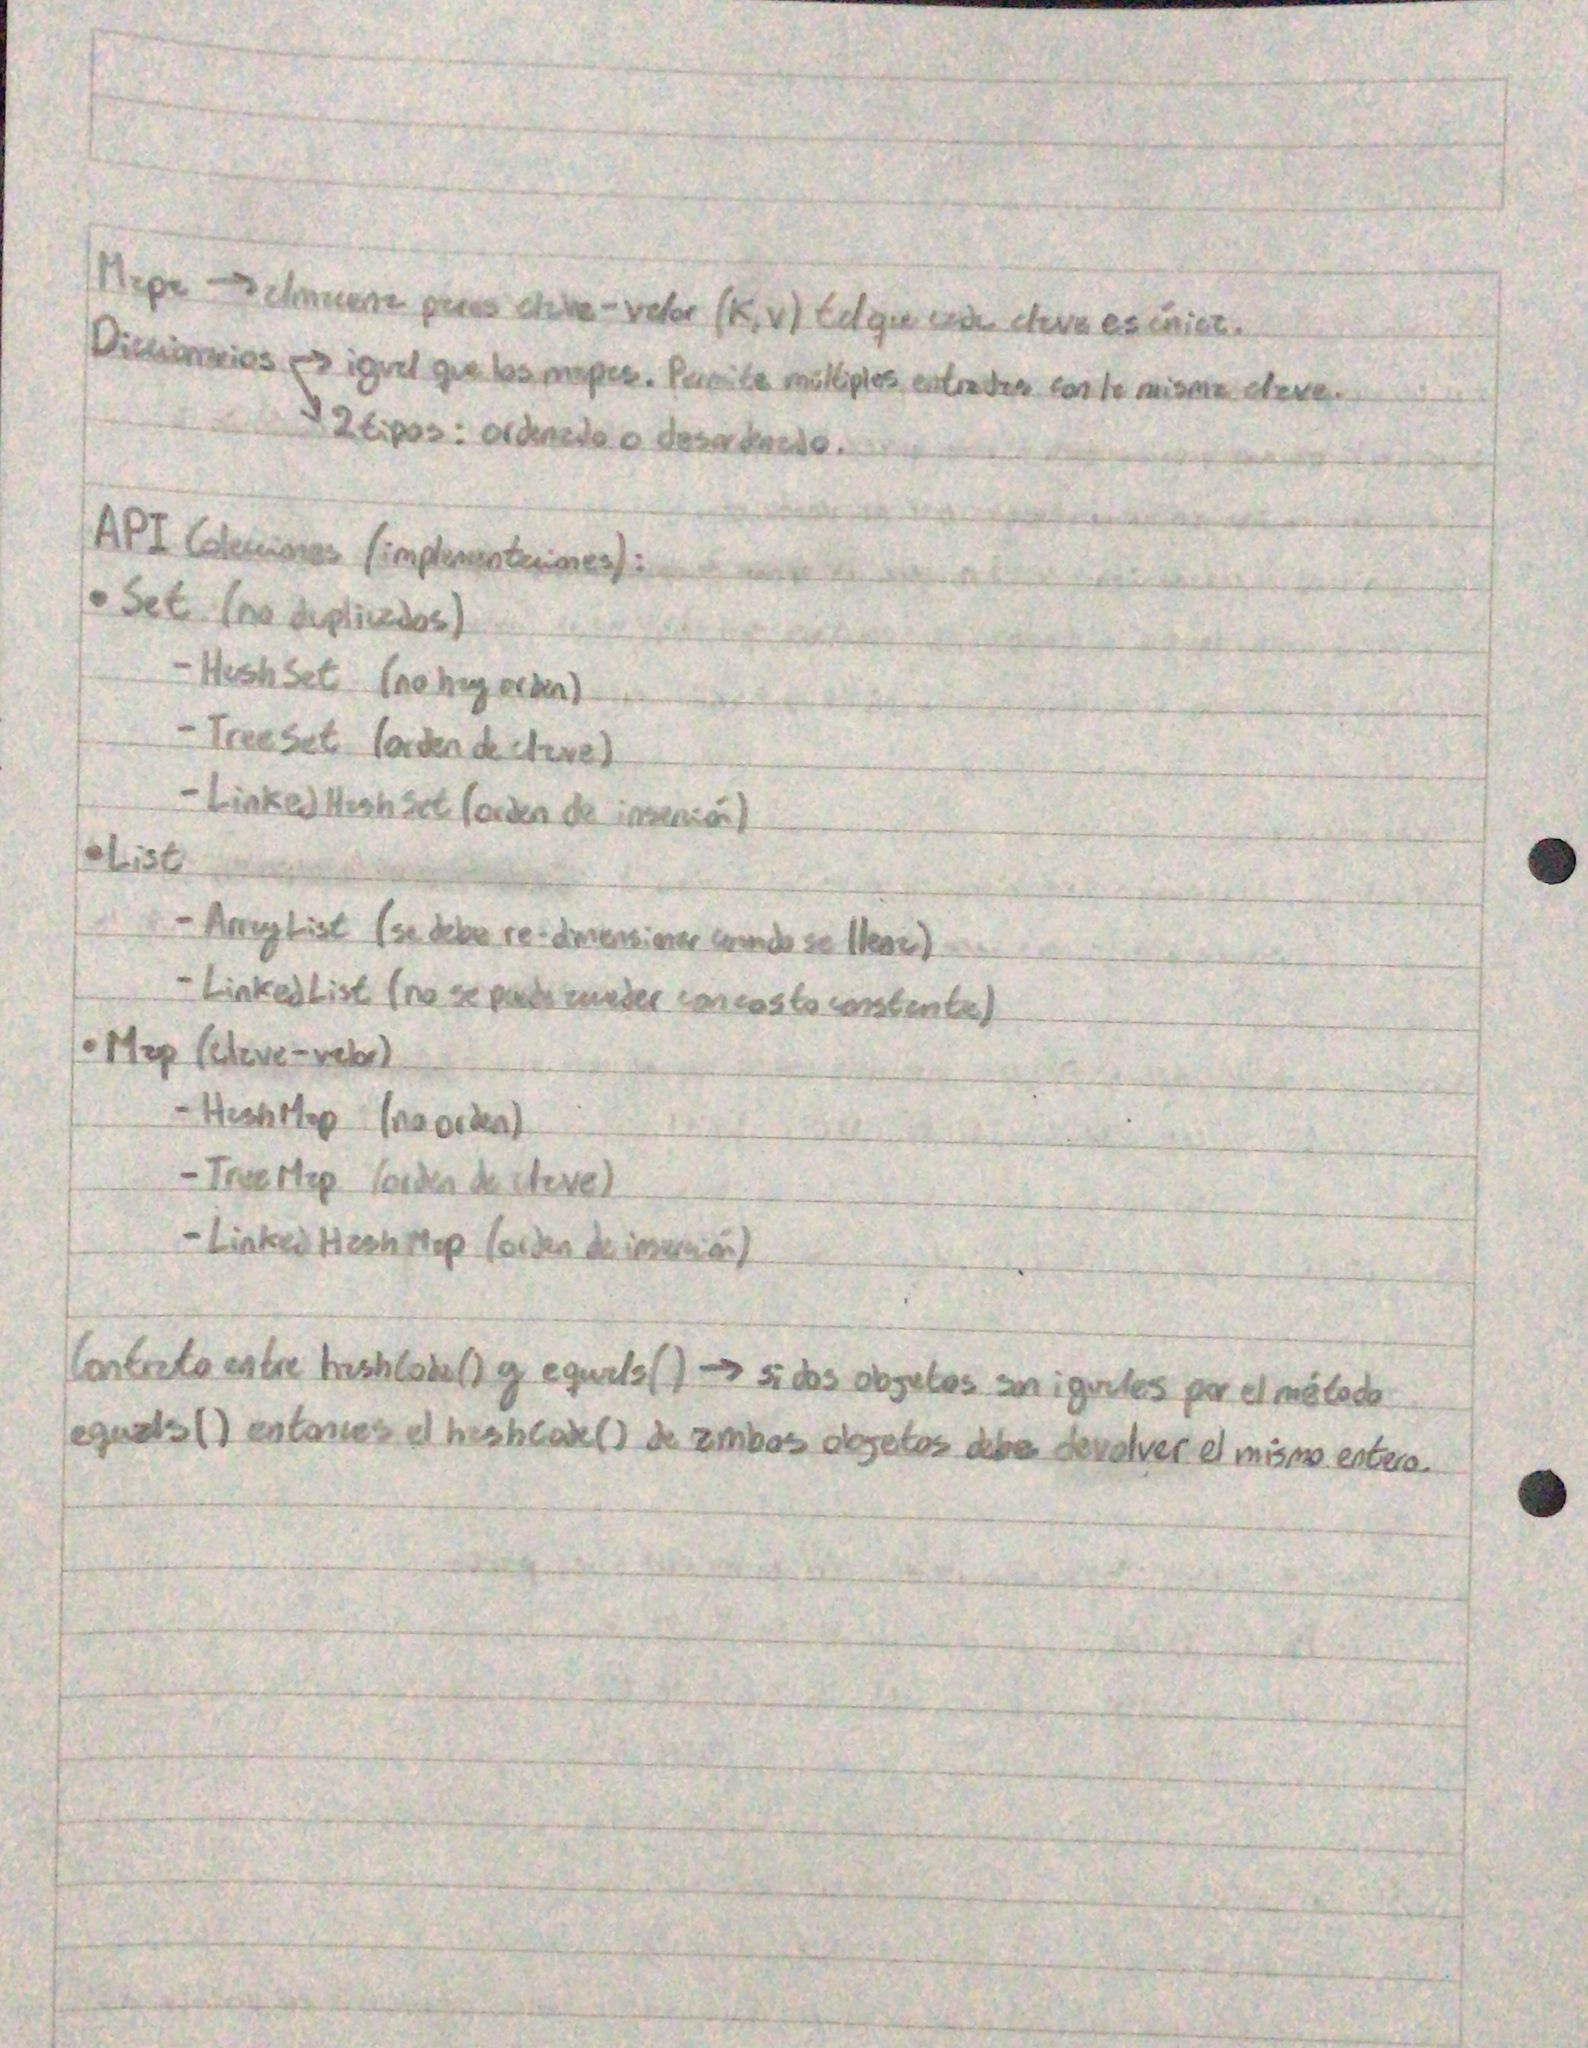 Mapa → almacena pares clave-valor (K,V) tal que cada clave es única.
Diccionarios → igual que los mapas. Permite múltiples entradas con la misma clave.
↘ 2 tipos: ordenado o desordenado.
API Colecciones (implementaciones):
• Set (no duplicados)
- HashSet (no hay orden)
- TreeSet (orden de clave)
- LinkedHashSet (orden de inserción)
• List
- ArrayList (se debe re-dimensionar cuando se llena)
- LinkedList (no se puede acceder con costo constante)
• Map (clave-valor)
- HashMap (no orden)
- TreeMap (orden de clave)
- LinkedHashMap (orden de inserción)
Contrato entre hashCode() y equals() → si dos objetos son iguales por el método
equals() entonces el hashCode() de ambos objetos debe devolver el mismo entero.